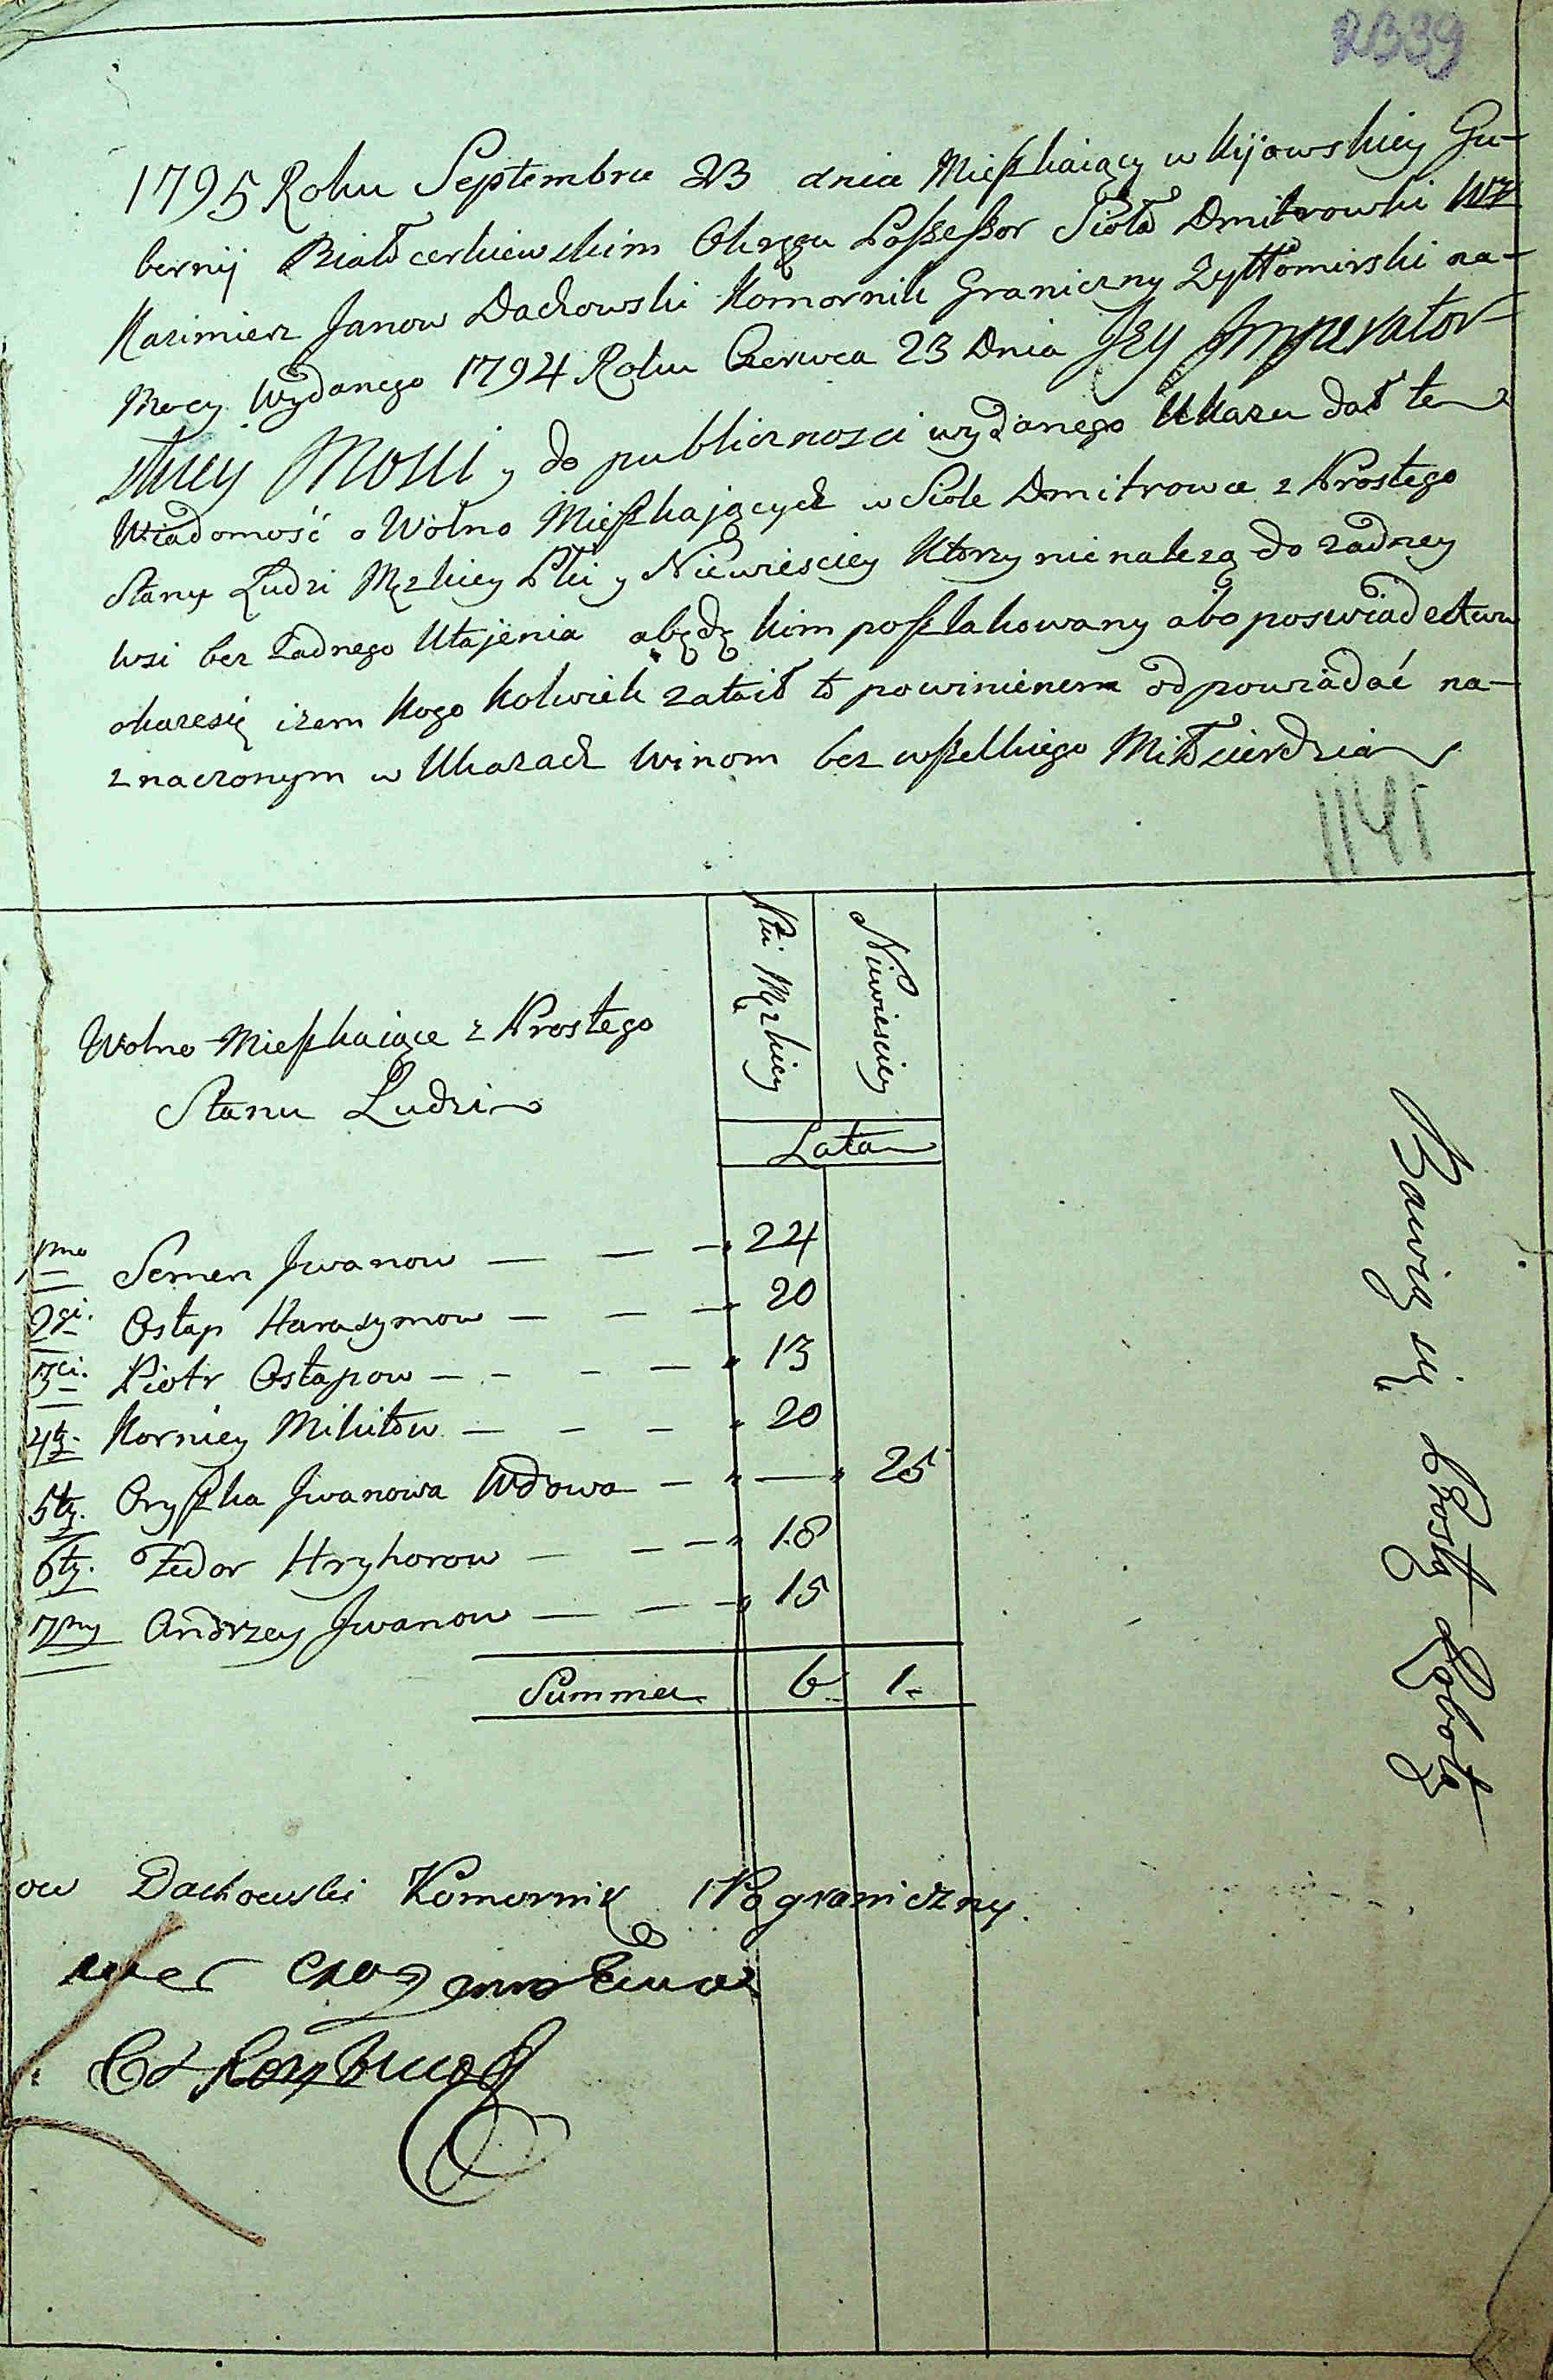 2339
1795 Roku Septembra 23 dnia Mieszkaiący w Kijowskiey Gu-
bernij Białocerkiewskim Okręgu Possessor Sioła Dmitrowki WJ
Kazimierz Janow Dachowski Komornik Graniczny Zyttomirski na-
Mocy Wydanego 1794 Roku Czerwca 23 Dnia Jey Imperator-
skiey Mosci y do publicznosci wydanego Ukazu dał te
Wiadomość o Wolno Mieszkających w Siole Dmitrowce z Prostego
Stanu Ludzi Męzkiey Płci y Niewiesciey Ktorzy nie nalezą do zadney
Wsi bez Zadnego Utajenia a będę kim poszlakowany abo poswiadectwu
okaze się izem kogo kolwiek zataił to powinienem odpowiadać na-
znaczonym w Ukazach Winom bez wszelkiego Miłosierdzia
1141
Wolno Mieszkaiące z Prostego
Stanu Ludzi
Płci Męzkiey
Niewiesciey
Lata
1mo Semen Jwanow — — — 24
2gi. Ostap Harasymow — — — 20
3ci. Piotr Ostapow — - - — 13
4ty. Korniey Mikitow — - — 20
5ty. Oryszka Jwanowa Wdowa — — 25
6ty. Fedor Hryhorow — — — 18
7my Andrzey Jwanow — — — 15
Summa 6. 1.
Bawią się Prostą Robotą
ow Dachowski Komornik Pograniczny.